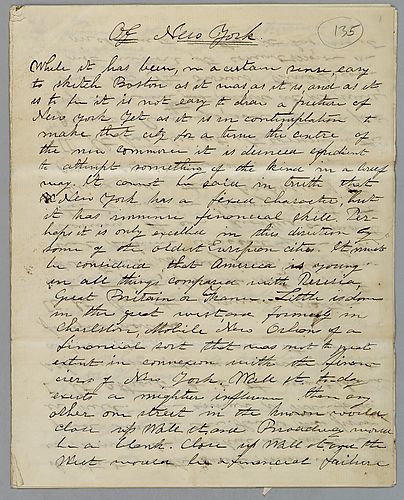 Of New York.
135
While it has been, in a certain sense, easy
to sketch Boston as it was as it is, and as it
is to be it is not easy to draw a picture of
New York Yet as it is in contemplation to
make that city for a time the centre of
the new commerce it is deemed expedient
to attempt something of the kind in a brief
way. It cannot be said in truth that
New York has a fixed character, but
it has immense financial skill. Per-
haps it is only excelled in this direction by
some of the oldest European cities. It must
be considered that America is young
in all things compared with
Great Britain or France. Little is done
in the great west and formerly in
Charleston, Mobile New Orleans of a
financial sort that was not to great
extent in connexion with the finan-
ciers of New York. Wall St. to-day
exerts a mightier influence than any
other one street in the known world
close up Wall st, and Broadway would
be a blank. Close up Wall st and the
West would be a financial failure